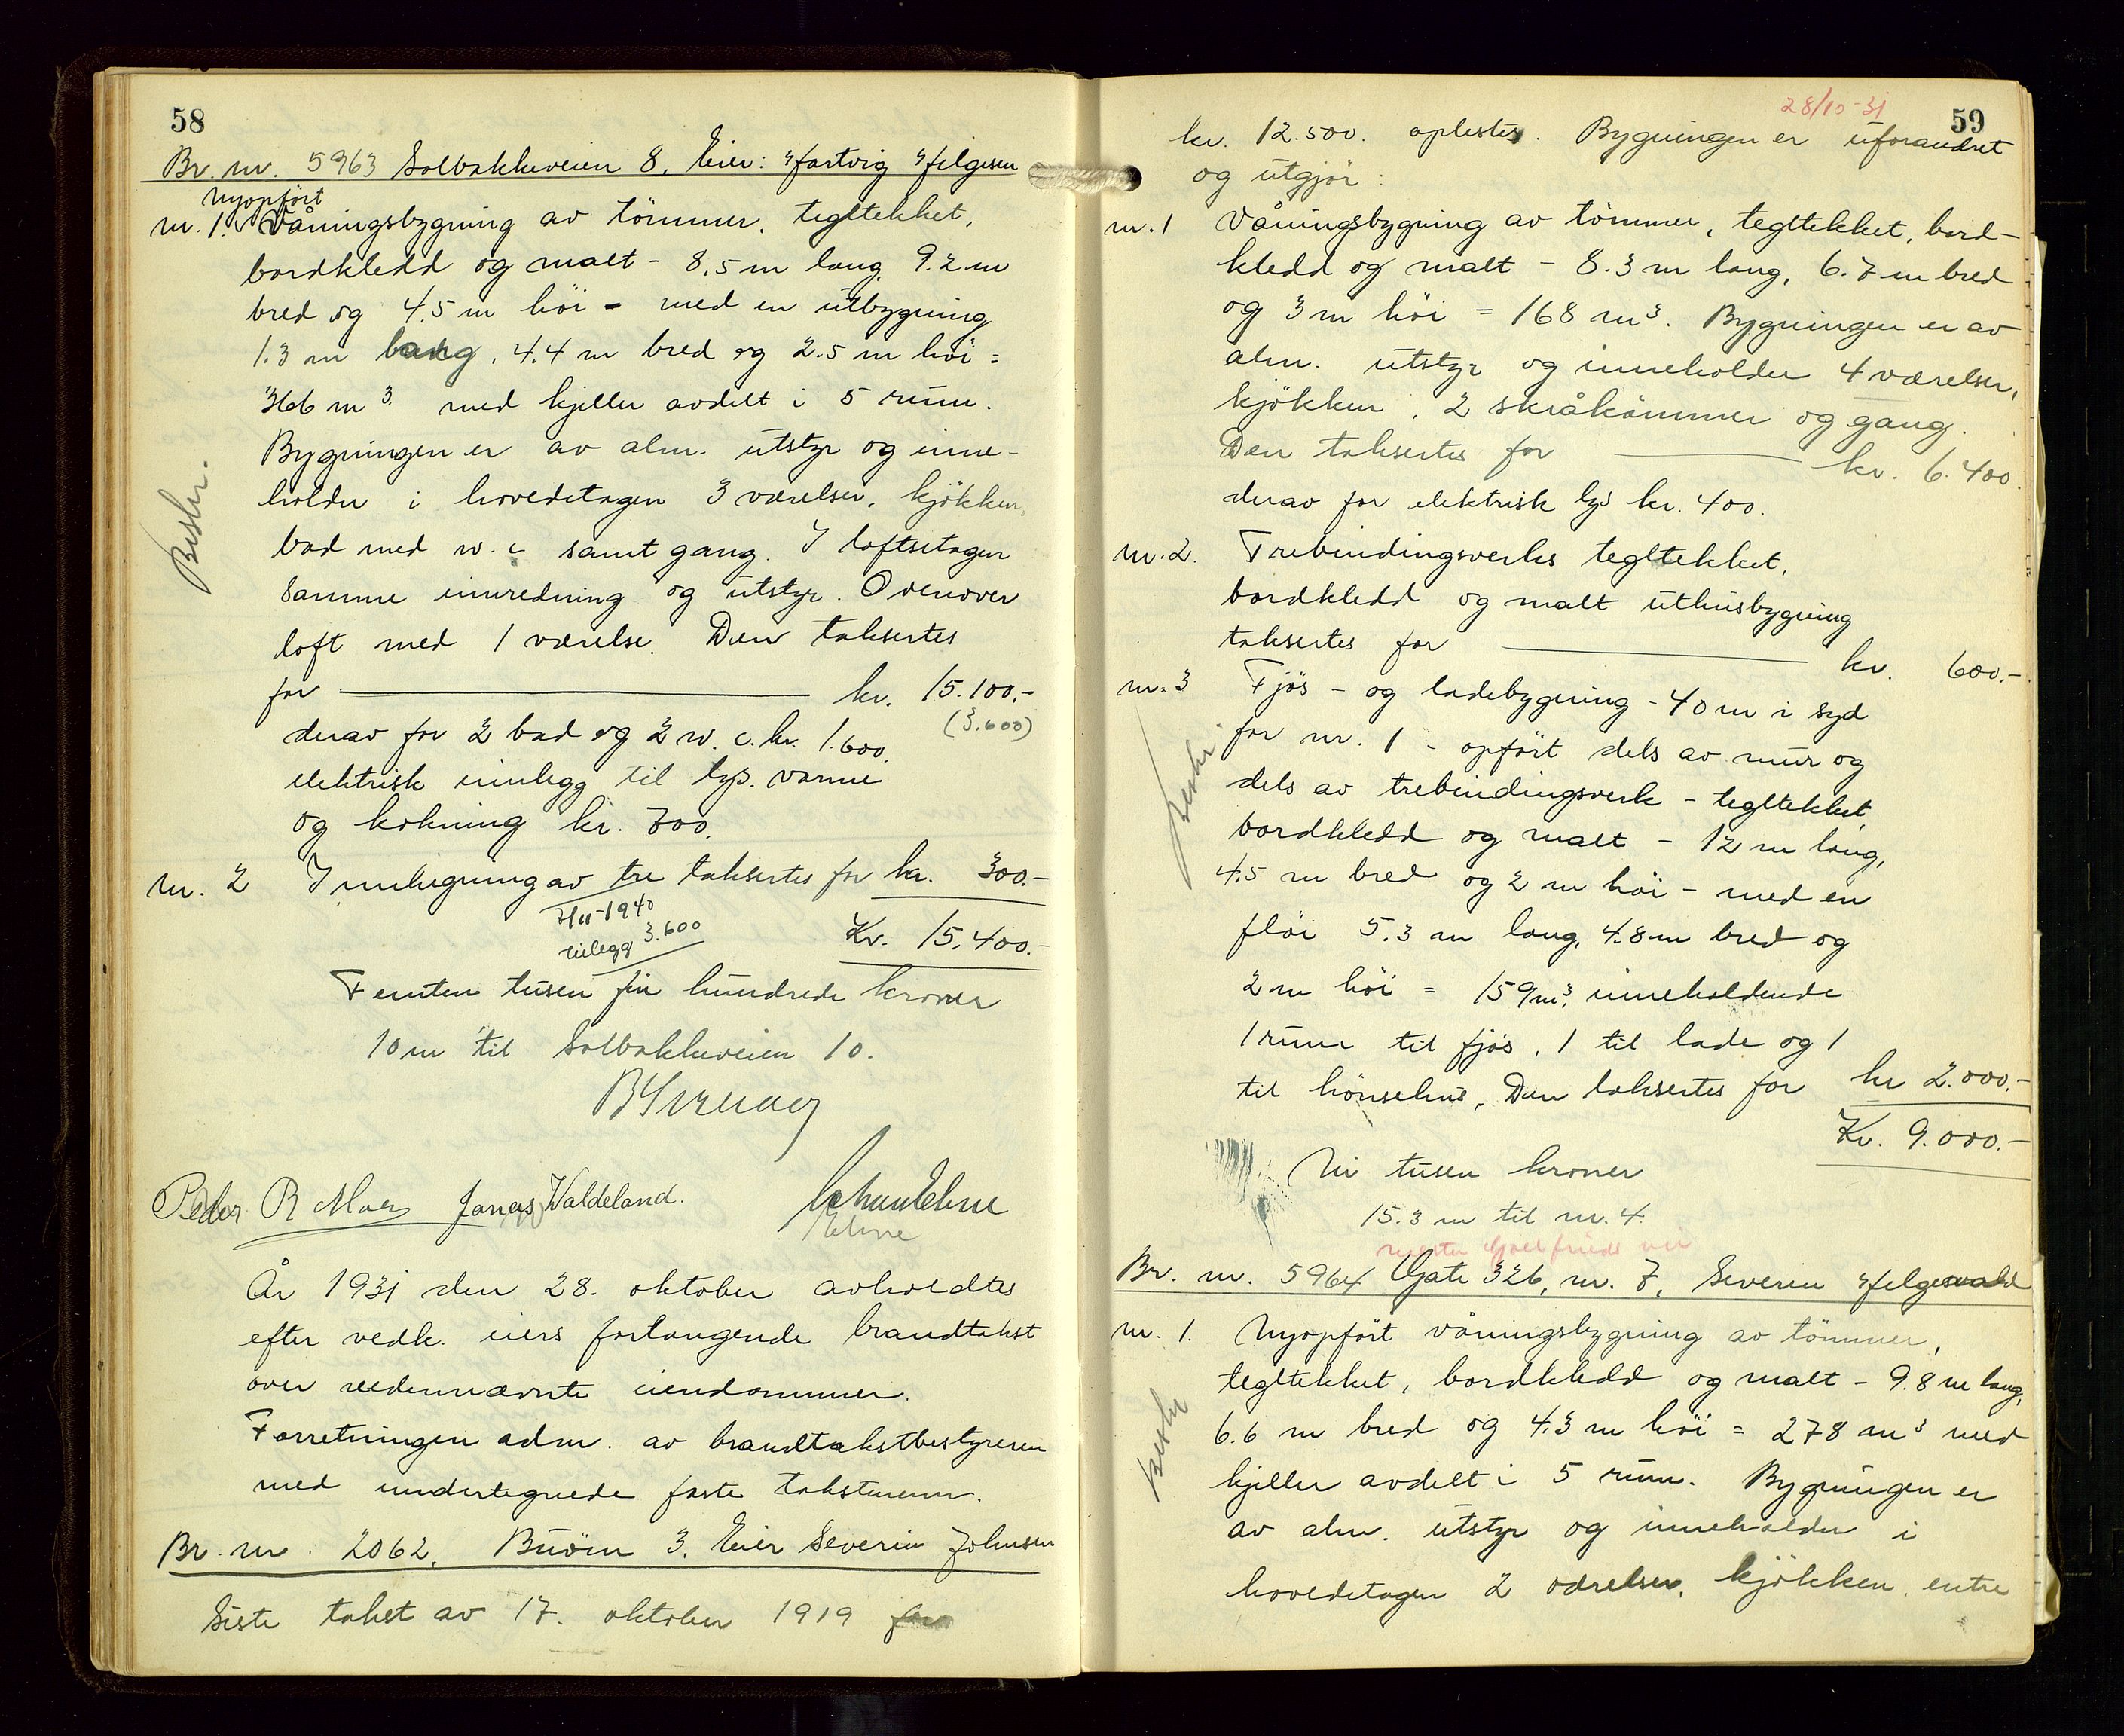 58
Br. nr. 5963 Solbakkeveien 8. Eier: Hartvig Helgesen
nyopført
nr. 1. Våningsbygning av tømmer, tegltekket,
bordkledd og malt - 8,5 m lang, 9.2 m
bred og 4.5 m høi - med en utbygning
1.3 m lang, 4.4 m bred og 2.5 m høi =
366 m³ med kjeller avdelt i 5 rum.
Bygningen er av alm. utstyr og inne-
holder i hovedetagen 3 værelser, kjøkken,
bad med w.c samt gang. I loftsetagen
samme innredning og utstyr. Ovenover
loft med 1 værelse. Den takseres
for kr. 15.100.-
(3.600)
derav for 2 bad og 2 w.c. kr. 1.600.
elektrisk innlegg til lys, varme
og kokning kr. 700.
nr. 2 Innhegning av tre taksertes for kr. 300.-
7/11-1940
tillegg 3.600
Kr. 15.400.-
Femten tusen fire hundrede kroner
10 m til Solbakkeveien 10.
Peder R Moe Jonas Waldeland.
År 1931 den 28. oktober avholdtes
efter vedk. eiers forlangende brandtakst
over nedennævnte eiendommer.
Forretningen adm. av brandtakstbestyreren
med undertegnede faste takstmenn.
Br. nr. 2062. Buøen 3. Eier Severin Johnsen
Siste takst av 17. oktober 1919 for
Beskr.
28/10-31
59
kr. 12.500. oplestes. Bygningen er uforandret
og utgjør:
nr. 1 Våningsbygning av tømmer, tegltekket, bord-
kledd og malt - 8.3 m lang, 6.7 m bred
og 3 m høi = 168 m³. Bygningen er av
alm. utstyr og inneholder 4 værelser,
kjøkken, 2 skråkammer og gang.
Den taksertes for kr. 6.400.
derav for elektrisk lys kr. 400.
nr. 2. Trebindingsverks tegltekket,
bordkledd og malt uthusbygning
taksertes for kr. 600.-
nr. 3 Fjøs - og ladebygning - 40 m i syd
for nr. 1 - opført dels av mur og
dels av trebindingsverk - tegltekket,
bordkledd og malt - 12 m lang,
4.5 m bred og 2 m høi - med en
fløi 5.3 m lang, 4.8 m bred og
2 m høi = 159 m³, inneholdende
1 rum til fjøs, 1 til lade og 1
til hønsehus. Den taksertes for kr 2.000.-
Kr. 9.000.-
Beskr
Ni tusen kroner
15.3 m til nr. 4.
Br. nr. 5964 Gate 326, nr. 7, Severin Helgevold
nr. 1. Nyopført våningsbygning av tømmer,
tegltekket, bordkledd og malt - 9.8 m lang,
6.6 m bred og 4.3 m høi = 278 m³ med
kjeller avdelt i 5 rum. Bygningen er
av alm. utstyr og inneholder i
hovedetagen 2 værelser, kjøkken, entre
Beskr